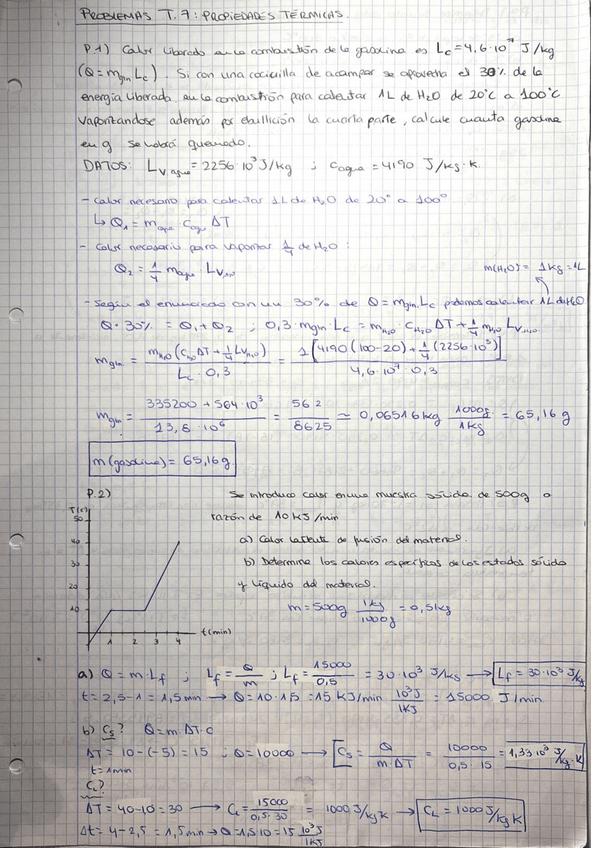 PROBLEMAS T.7: PROPIEDADES TÉRMICAS.
P.1) Calor liberado en la combustión de la gasolina es Lc = 4,6·10⁷ J/kg
(Q = mgm Lc). Si con una cocinilla de acampar se aprovecha el 30% de la
energía liberada en la combustión para calentar 1L de H₂O de 20°C a 100°C
vaporizándose además por ebullición la cuarta parte, calcule cuanta gasolina
en g se habrá quemado.
DATOS: Lv agua = 2256·10³ J/kg ; cagua = 4190 J/kg·K.
- Calor necesario para calentar 1L de H₂O de 20° a 100°
↳ Q₁ = magua cagua ΔT
- Calor necesario para vaporizar 1/4 de H₂O:
Q₂ = 1/4 magua · LvH₂O
m(H₂O) = 1kg = 1L
- Según el enunciado con un 30% de Q = mgm·Lc podemos calentar 1L de H₂O
Q·30% = Q₁ + Q₂ ; 0,3·mgm·Lc = mH₂O cH₂O ΔT + 1/4 mH₂O LvH₂O
mgm = mH₂O (cH₂O ΔT + 1/4 LvH₂O) / Lc · 0,3 = 1[4190(100-20) + 1/4 (2256·10³)] / 4,6·10⁷ · 0,3
mgm = 335200 + 564·10³ / 13,8·10⁶ = 562 / 8625 ≃ 0,06516 kg 1000g / 1kg = 65,16 g
m(gasolina) = 65,16g
P.2) Se introduce calor en una muestra sólida de 500g a
razón de 10 kJ/min
a) Calor latente de fusión del material.
b) Determine los calores específicos de los estados sólido
y líquido del material.
m = 500g 1kg / 1000g = 0,5kg
T(°C)
50
40
30
20
10
1 2 3 4 t(min)
a) Q = m·Lf ; Lf = Q/m ; Lf = 15000 / 0,5 = 30·10³ J/kg → Lf = 30·10³ J/kg
t = 2,5-1 = 1,5 min → Q = 10·1,5 = 15 KJ/min 10³J / 1KJ = 15000 J/min
b) Cs? Q = m·ΔT·c
ΔT = 10-(-5) = 15 ; Q = 10000 → Cs = Q / m·ΔT = 10000 / 0,5·15 = 1,33·10³ J/kg·K
t = 1min
CL?
ΔT = 40-10 = 30 → CL = 15000 / 0,5·30 = 1000 J/kgK → CL = 1000 J/kg K
Δt = 4-2,5 = 1,5 min → Q = 1,5·10 = 15 10³J / 1KJ